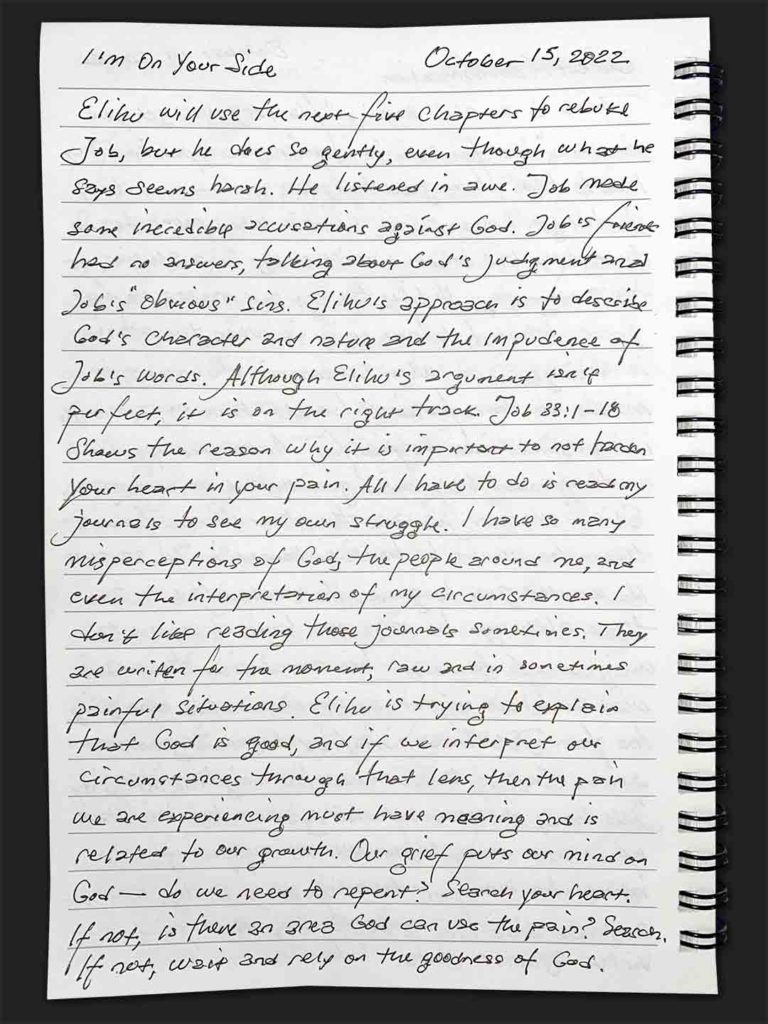 I'm On Your Side October 15, 2022
Elihu will use the next five chapters to rebuke
Job, but he does so gently, even though what he
says seems harsh. He listened in awe. Job made
some incredible accusations against God. Job's friends
had no answers, talking about God's judgment and
Job's "obvious" sins. Elihu's approach is to describe
God's character and nature and the impudence of
Job's words. Although Elihu's argument isn't
perfect, it is on the right track. Job 33:1-18
shows the reason why it is important to not harden
your heart in your pain. All I have to do is read my
journals to see my own struggle. I have so many
misperceptions of God, the people around me, and
even the interpretation of my circumstances. I
don't like reading those journals sometimes. They
are written for the moment, raw and in sometimes
painful situations. Elihu is trying to explain
that God is good, and if we interpret our
circumstances through that lens, then the pain
we are experiencing must have meaning and is
related to our growth. Our grief puts our mind on
God — do we need to repent? Search your heart.
If not, is there an area God can use the pain? Search.
If not, wait and rely on the goodness of God.